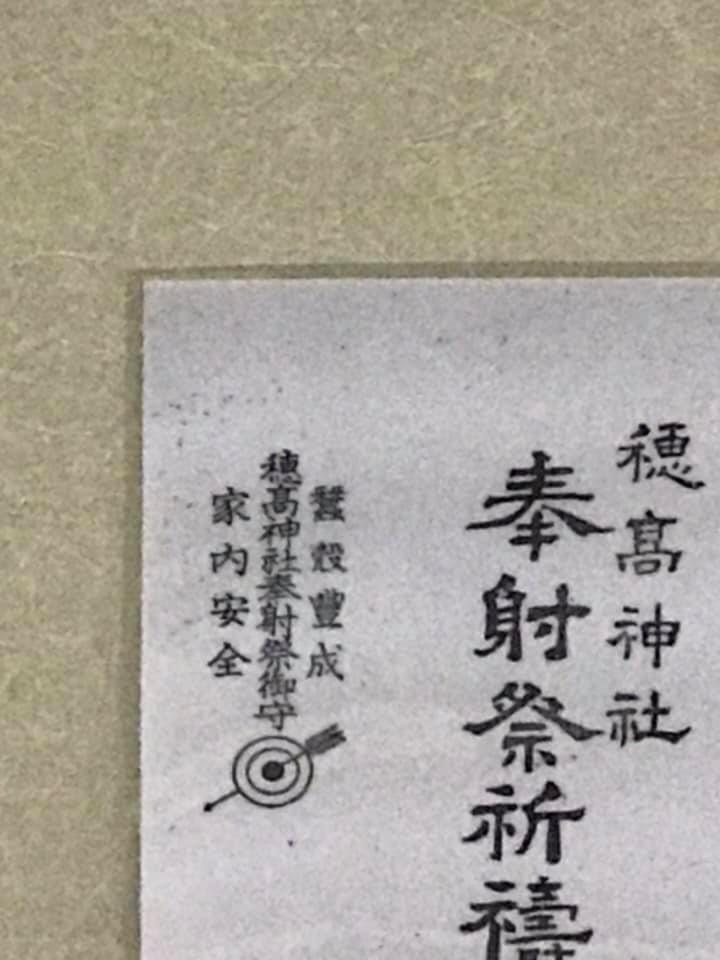 穂髙神社
奉射祭祈禱
蠶穀豐成
穂髙神社奉射祭御守
家内安全